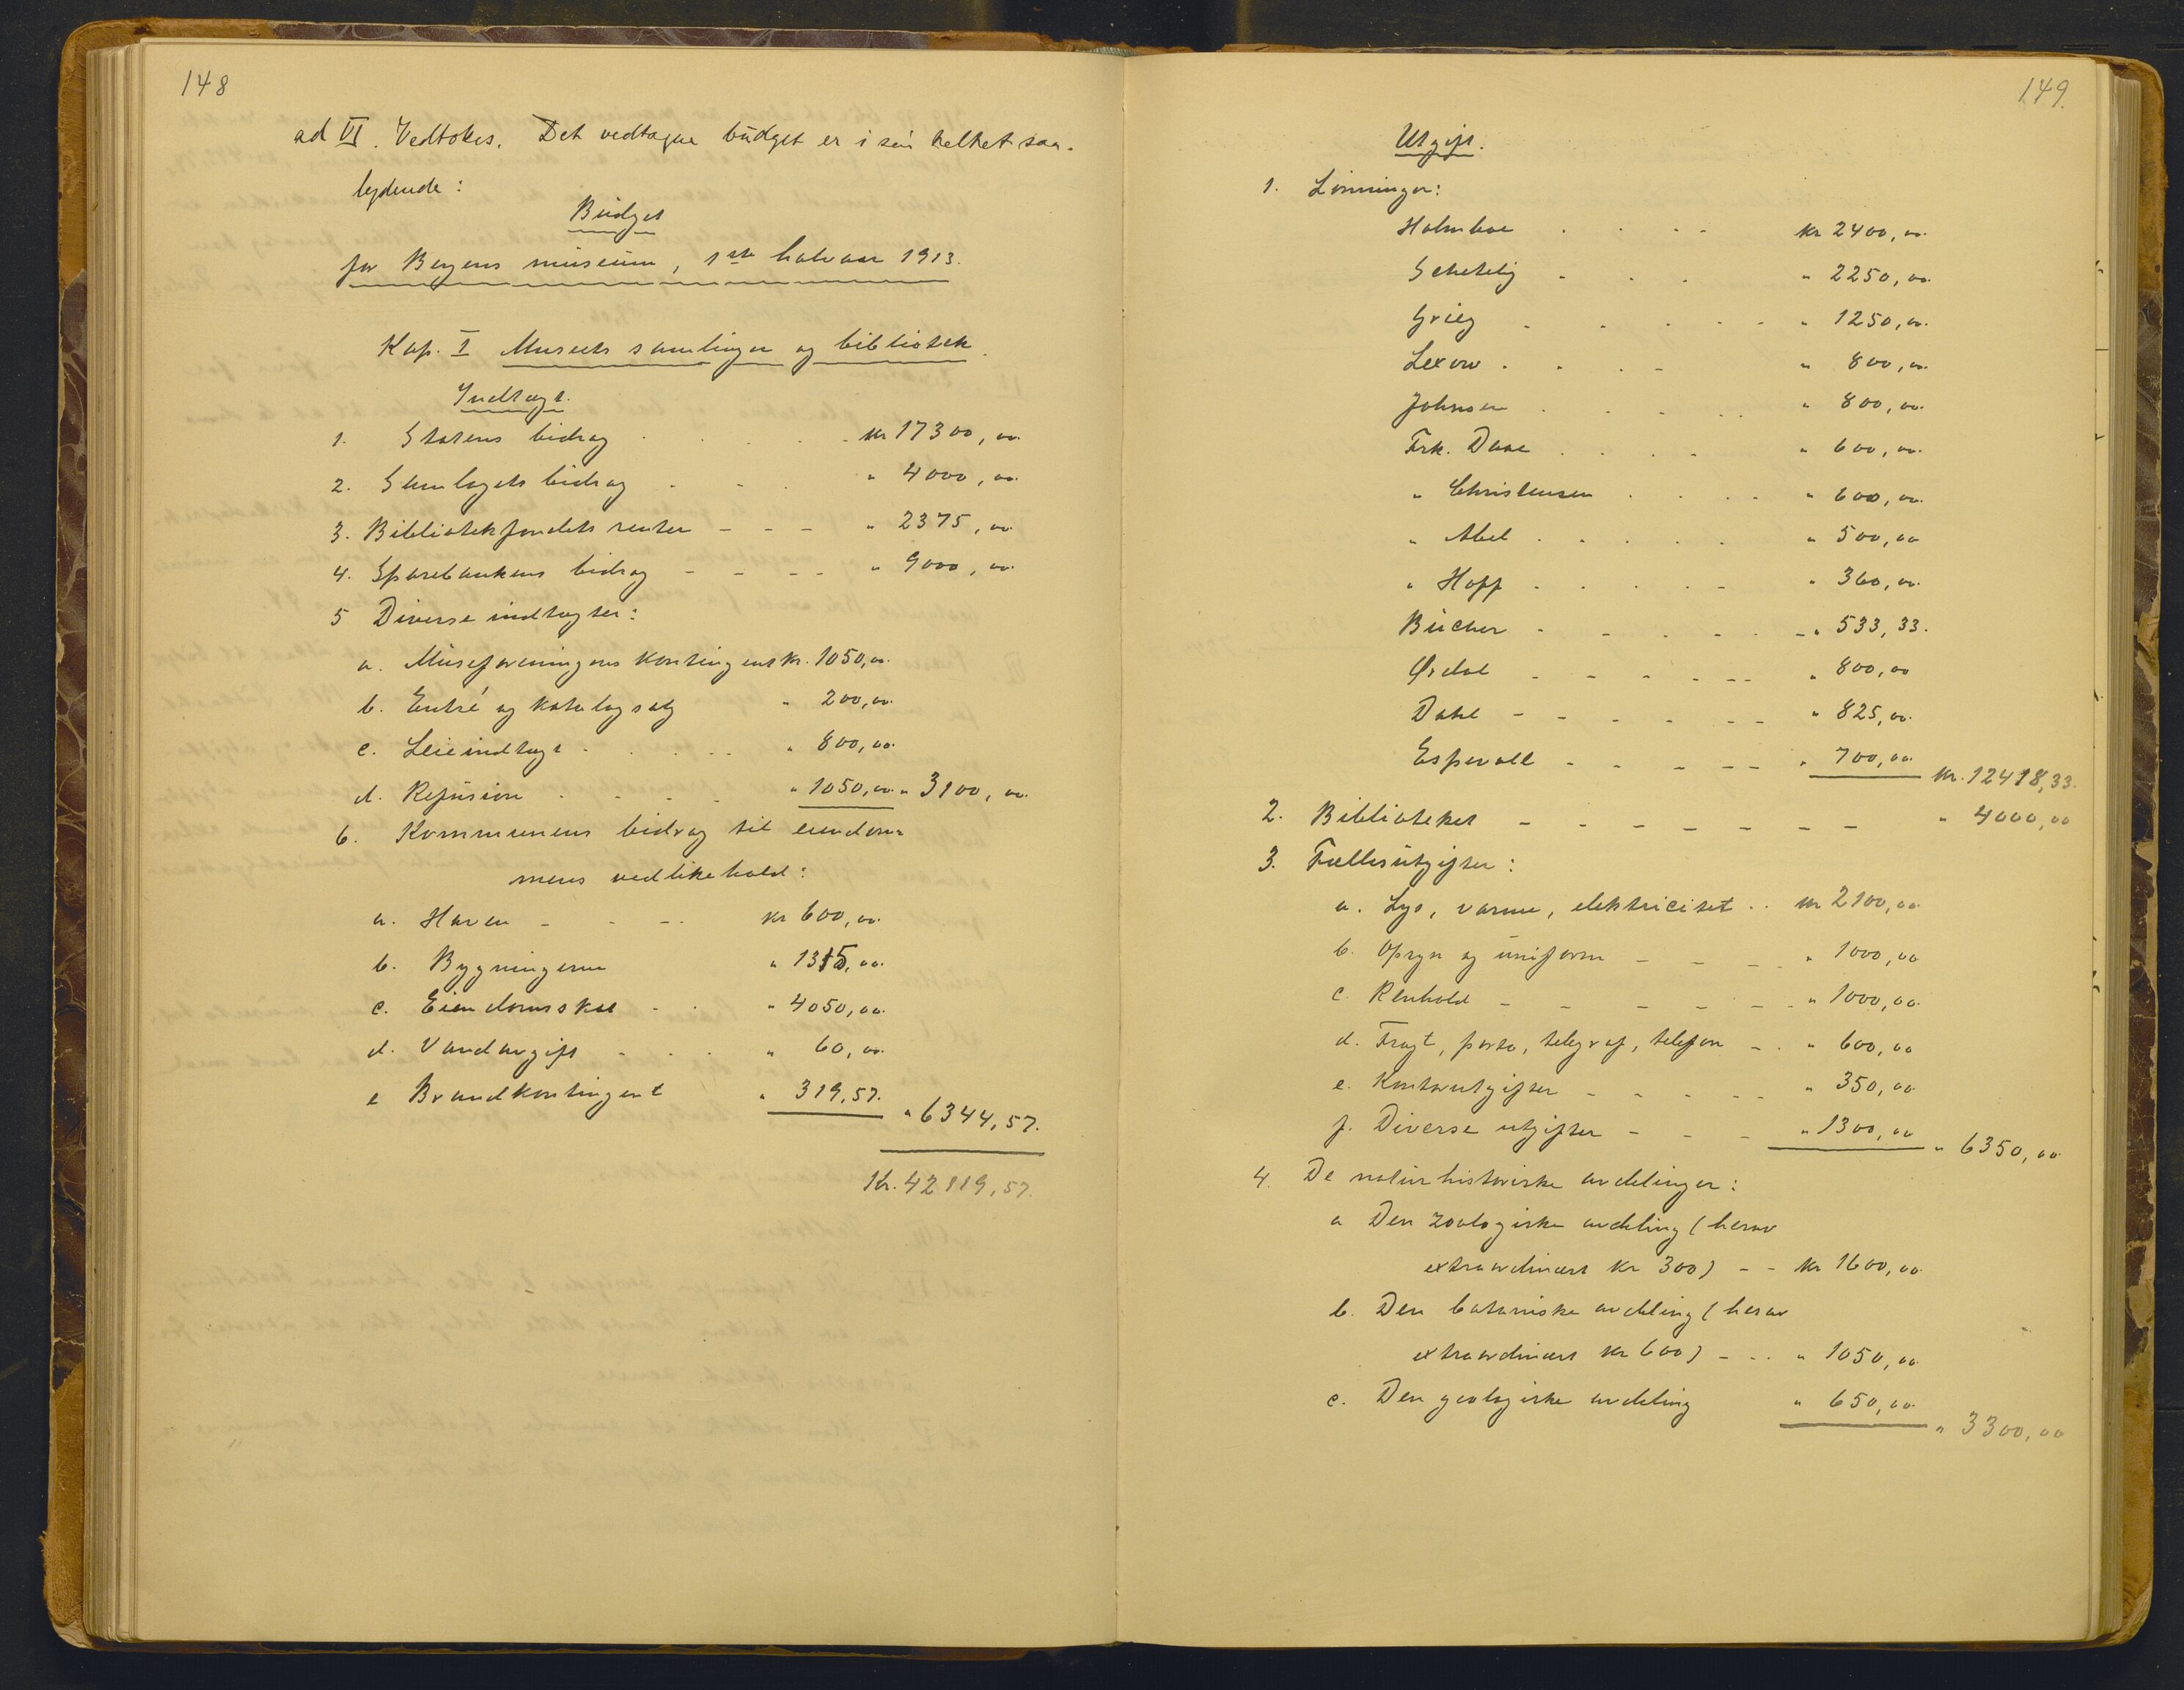 148
ad VI. Vedtokes. Det vedtagne budget er i sin helhet saa-
lydende:
Budget
for Bergens museum, 1ste halvaar 1913.
Kap. I Museets samlinger og bibliotek.
Indtægt.
1. Statens bidrag . . . . . kr 17300,00
2. Samlagets bidrag - - . " 4000,00
3. Bibliotekfondets renter - - - " 2375,00
4. Sparebankens bidrag - - - - " 9000,00
5 Diverse indtægter:
a. Museforeningens kontingent kr. 1050,00
b. Entré og katalogsalg " 200,00
c. Leieindtægt - . . . - " 800,00
d. Refusion . - . - " 1050,00 " 3100,00
6. Kommunens bidrag til eiendom-
mens vedlikehold:
a. Haven - - - kr 600,00
b. Bygningerne " 1315,00
c. Eiendomsskat - . " 4050,00
d. Vandavgift - . . " 60,00
e Brandkontingent " 319,57. " 6344,57.
Kr. 42119,57.
149.
Utgift.
1. Lønninger:
Holmboe . . . . kr 2400,00
Schetelig - . . " 2250,00
Grieg . . . . . " 1250,00
Lexow . . . - " 800,00
Johnsen . . . . " 800,00
Frk. Daae . . . . " 600,00
" Christensen . . . . " 600,00
" Abel . . . . . " 500,00
" Hopp . . . . - " 360,00
Bücher - - . . . " 533,33.
Ørdal - - - - - " 800,00
Dahl - - - - - - " 825,00
Espevoll - - - - - " 700,00 kr. 12418,33.
2. Biblioteket - - - - - - - - " 4000,00
3. Fællesutgifter:
a. Lys, varme, elektricitet . . kr 2100,00
b. Opsyn og uniform - - - " 1000,00
c. Renhold - - - - - - " 1000,00
d. Fragt, porto, telegraf, telefon - . " 600,00
e. Kontorutgifter - - - - - " 350,00
f. Diverse utgifter - - - " 1300,00 " 6350,00
4. De naturhistoriske avdelinger:
a Den zoologiske avdeling (herav
extraordinært kr 300) - - kr 1600,00
b. Den botaniske avdeling (herav
extraordinært kr 600) - - . " 1050,00
c. Den geologiske avdeling " 650,00
" 3300,00